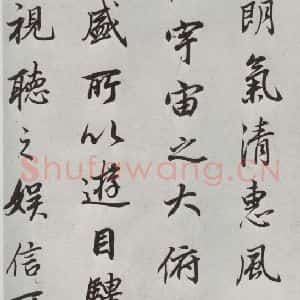 朗氣清惠風
宇宙之大俯
盛所以遊目騁
視聽之娛信可
Shufawang.CN